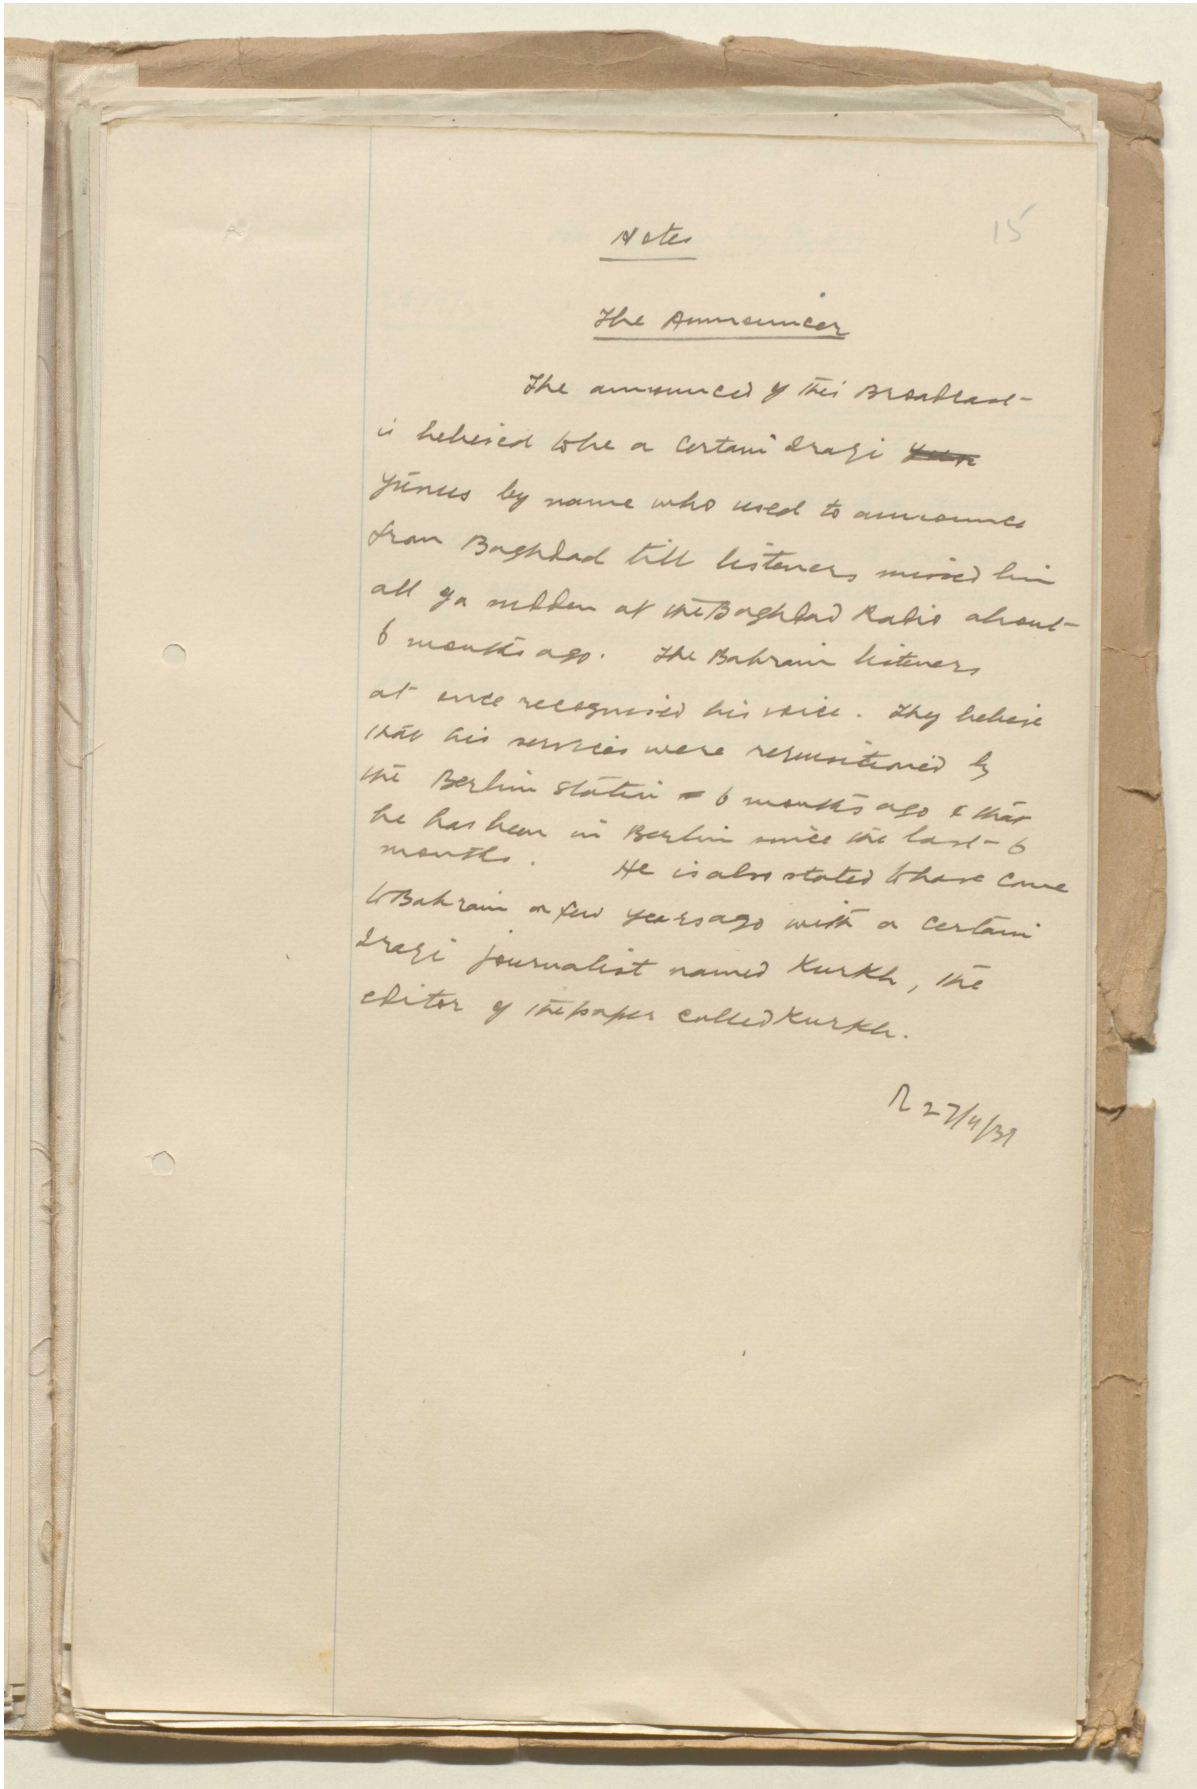 15
Notes
The Announcer
The announcer of this Broadcast
is believed to be a certain Iraqi Yun
Yunus by name who used to announce
from Baghdad till listeners missed him
all of a sudden at the Baghdad Radio about
6 months ago. The Bahrain listeners
at once recognised his voice. They believe
that his services were requisitioned by
the Berlin station 6 months ago & that
he has been in Berlin since the last 6
months. He is also stated to have come
to Bahrain a few years ago with a certain
Iraqi journalist named Kurkh, the
editor of the paper called Kurkh.
27/4/39